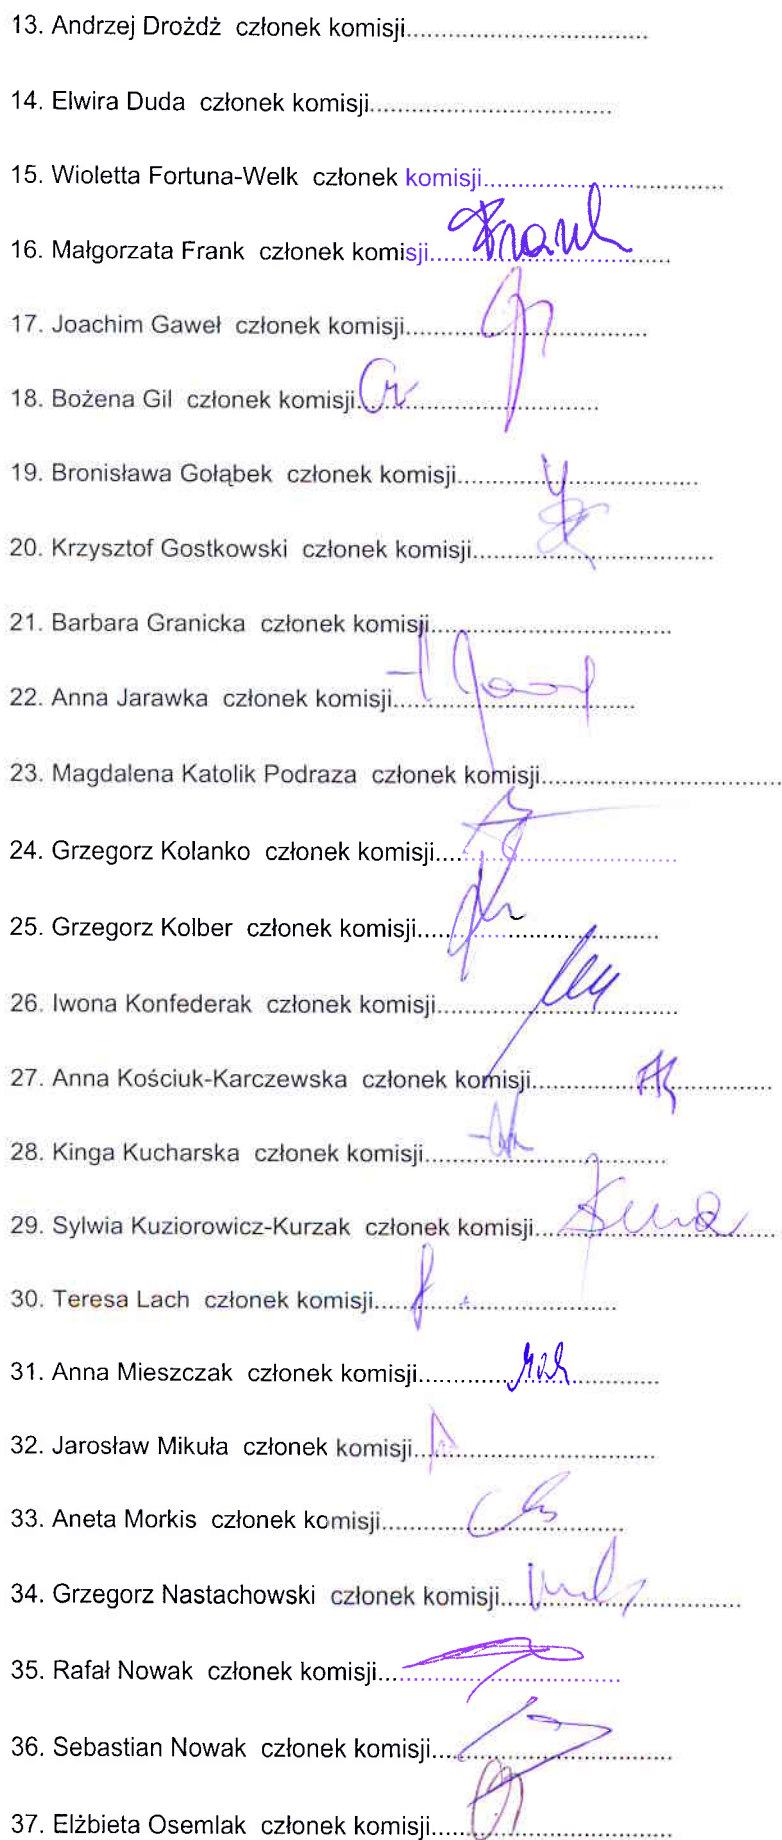 13. Andrzej Drożdż członek komisji..................................
14. Elwira Duda członek komisji..................................
15. Wioletta Fortuna-Welk członek komisji..................................
16. Małgorzata Frank członek komisji.................................. Frank
17. Joachim Gaweł członek komisji..................................
18. Bożena Gil członek komisji..................................
19. Bronisława Gołąbek członek komisji..................................
20. Krzysztof Gostkowski członek komisji..................................
21. Barbara Granicka członek komisji..................................
22. Anna Jarawka członek komisji..................................
23. Magdalena Katolik Podraza członek komisji..................................
24. Grzegorz Kolanko członek komisji..................................
25. Grzegorz Kolber członek komisji..................................
26. Iwona Konfederak członek komisji..................................
27. Anna Kościuk-Karczewska członek komisji..................................
28. Kinga Kucharska członek komisji..................................
29. Sylwia Kuziorowicz-Kurzak członek komisji..................................
30. Teresa Lach członek komisji..................................
31. Anna Mieszczak członek komisji..................................
32. Jarosław Mikuła członek komisji..................................
33. Aneta Morkis członek komisji..................................
34. Grzegorz Nastachowski członek komisji..................................
35. Rafał Nowak członek komisji..................................
36. Sebastian Nowak członek komisji..................................
37. Elżbieta Osemlak członek komisji..................................